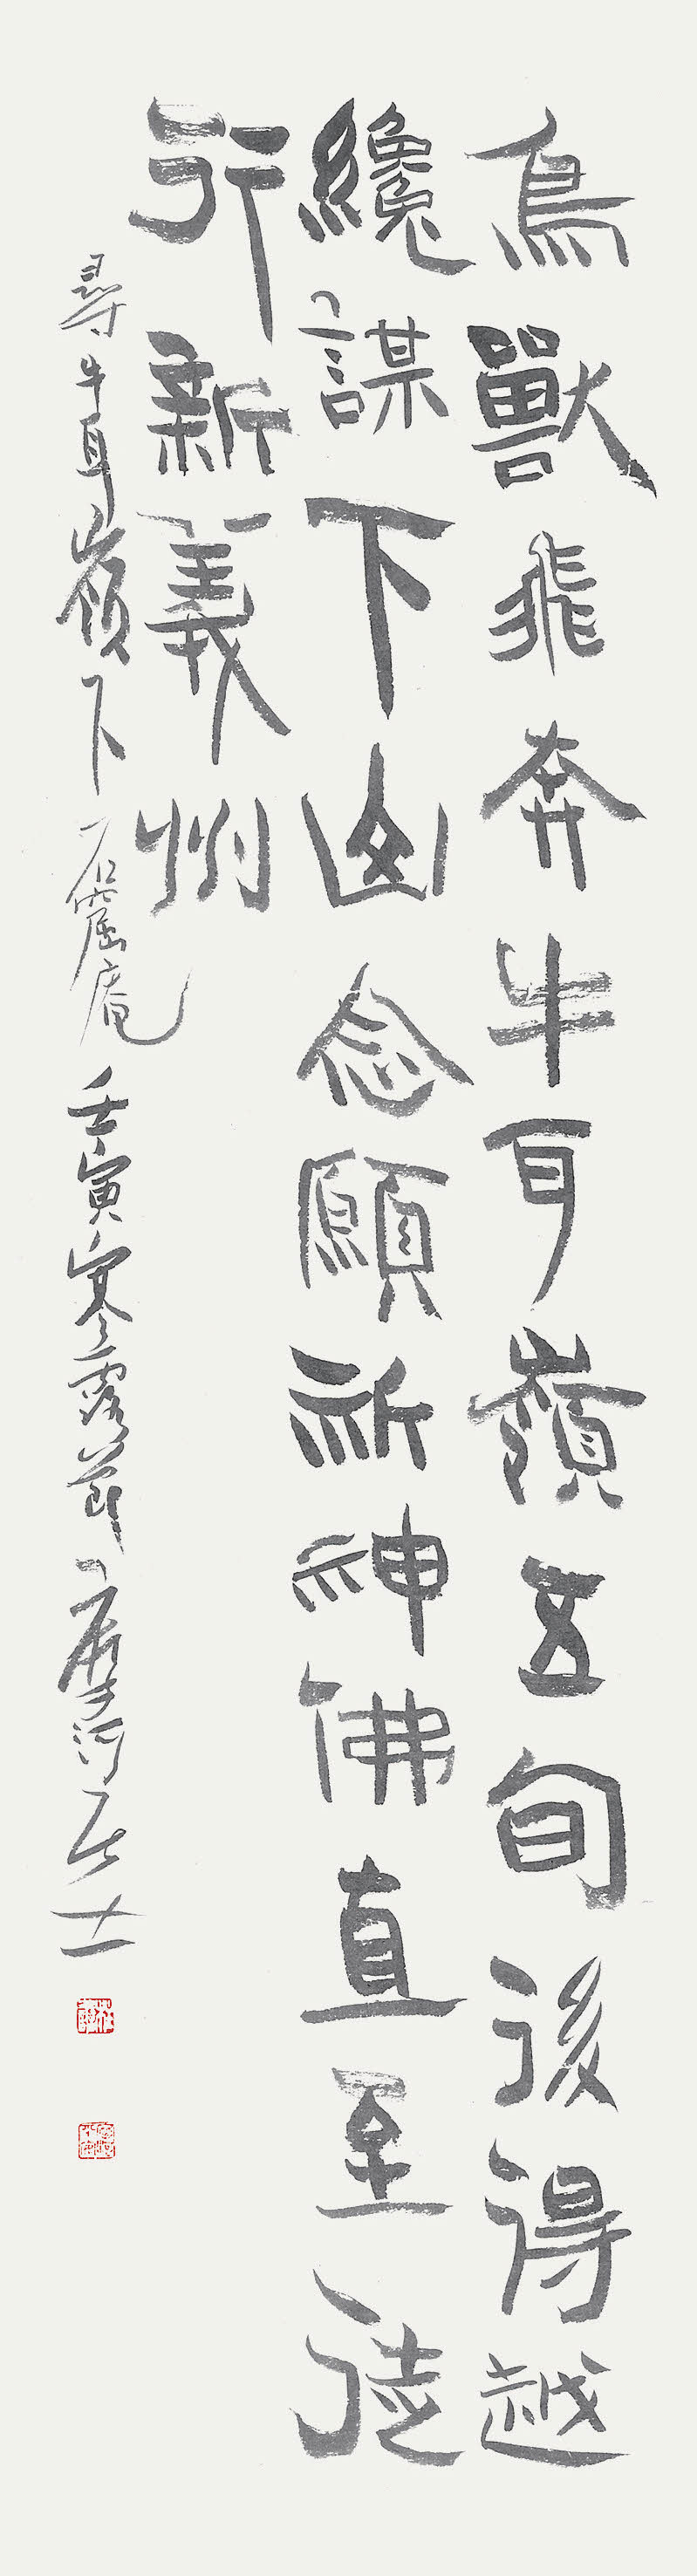 鳥獸飛奔牛耳嶺五旬後得越
纔謀下山念願祈神佛直至徒
行新義州
尋牛耳嶺下石窟庵 壬寅寒露節 摩河居士